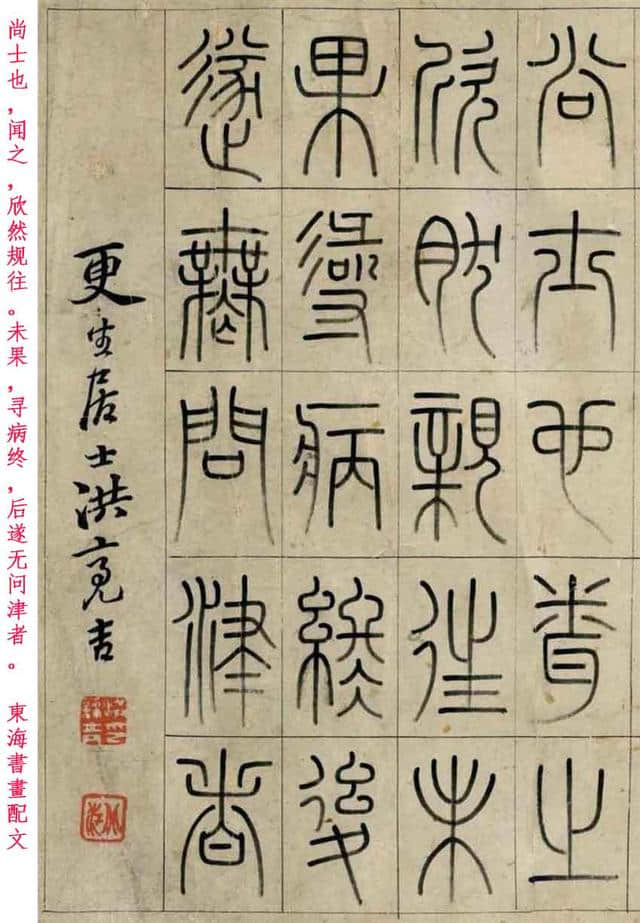 尚士也聞之
欣然親往未
果尋病終後
遂無問津者
更生居士洪亮吉
尚士也，闻之，欣然规往。未果，寻病终，后遂无问津者。 東海書畫配文